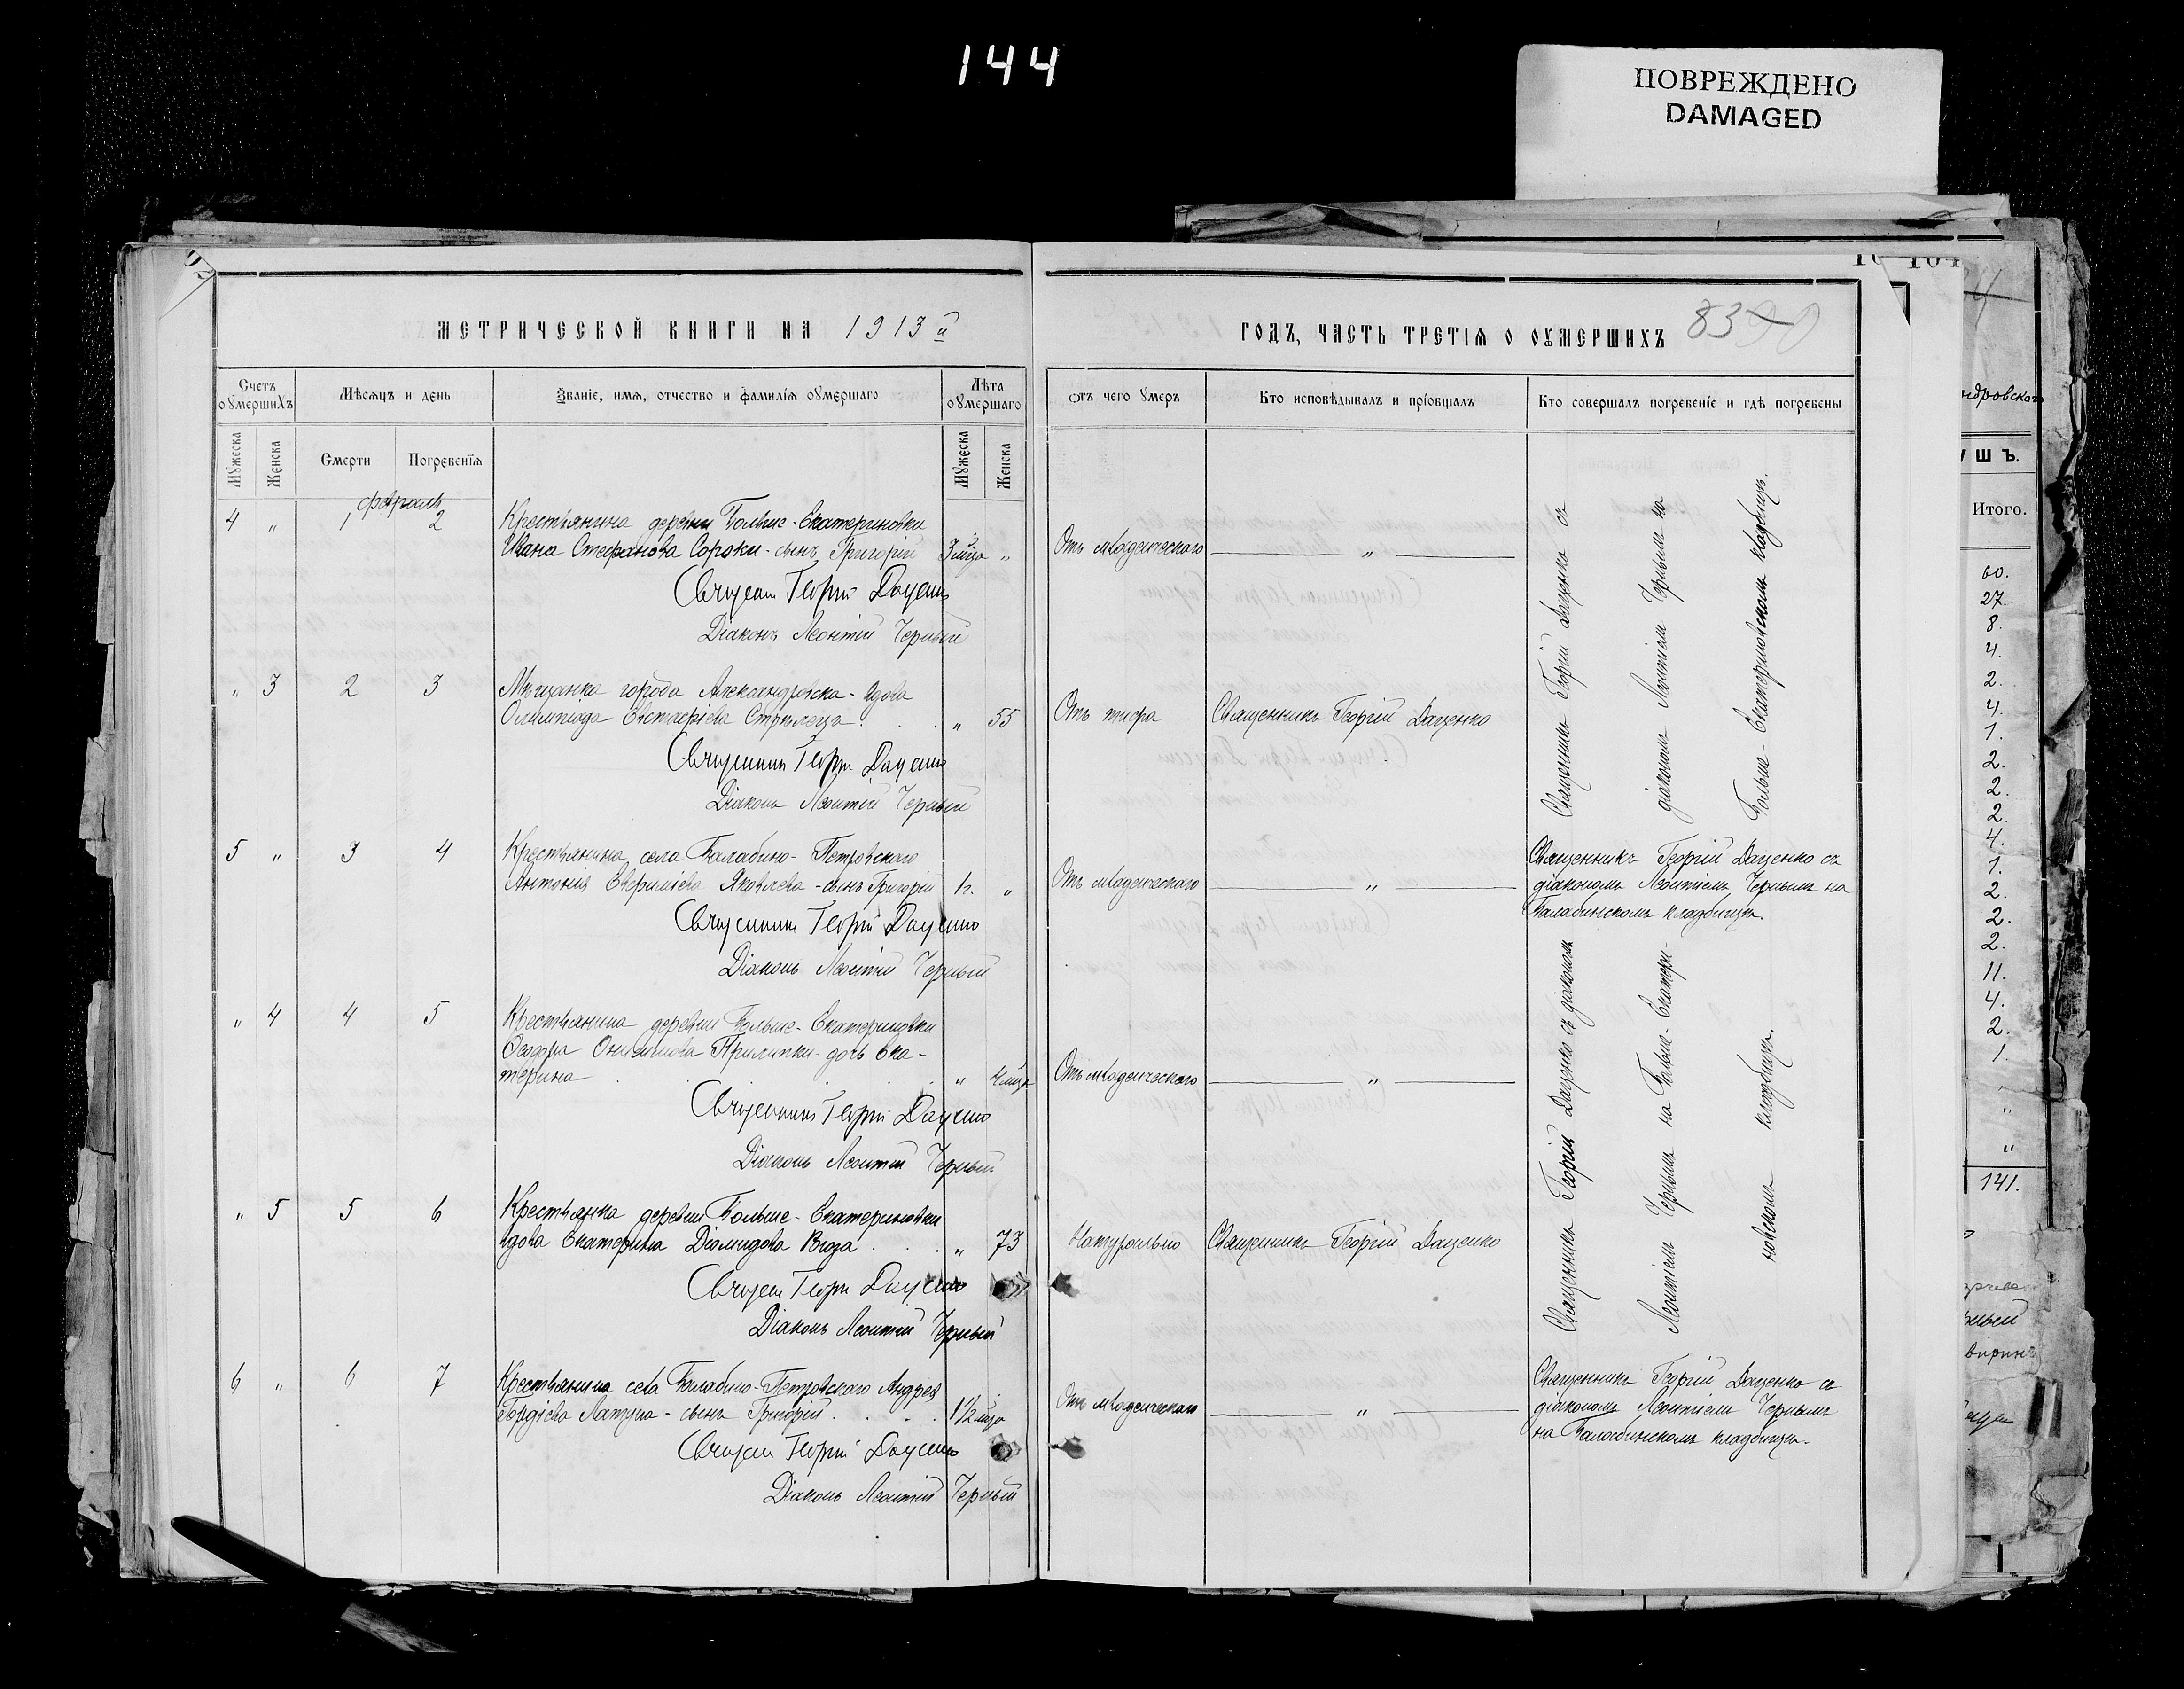 144
ПОВРЕЖДЕНО
DAMAGED
МЕТРИЧЕСКОЙ КНИГИ НА 1913 й
Счетъ умершихъ
Мѣсяцъ и день
Званіе, имя, отчество и фамилія умершаго
Лѣта умершаго
Мужеска
Женска
Смерти
Погребенія
Мужеска
Женска
февраль
4 " 1 2 Крестьянина деревни Больше-Екатериновки
Ивана Стефанова Сороки - сынъ Григорій 3 мца "
Священ Георгій Даценко
Діаконъ Леонтій Черный
" 3 2 3 Мѣщанка города Александровска - вдова
Олимпіада Евстафіева Стрѣлецъ . . . " 55
Священникъ Георгій Даценко
Діаконъ Леонтій Черный
5 " 3 4 Крестьянина села Балабино-Петровского
Антонія Яковлева - сынъ Григорій "
Священникъ Георгій Даценко
Діаконъ Леонтій Черный
" 4 4 5 Крестьянина деревни Больше-Екатериновки
Ѳеодора Прилипки - дочь Ека-
терина . . . " мца
Священникъ Георгій Даценко
Діаконъ Леонтій Черный
" 5 5 6 Крестьянка деревни Больше-Екатериновки
вдова Екатерина Діомидова . . . " 73
Священ Георгій Даценко
Діаконъ Леонтій Черный
6 " 6 7 Крестьянина села Балабино-Петровского Андрея
Гордіева - сынъ Григорій . . . . 1½ мца
Священ Георгій Даценко
Діаконъ Леонтій Черный
ГОДЪ, ЧАСТЬ ТРЕТІЯ О УМЕРШИХЪ 83
отъ чего умеръ
Кто исповѣдывалъ и пріобщалъ
Кто совершалъ погребеніе и гдѣ погребены
Отъ младенческаго "
Священникъ Георгій Даценко съ
діакономъ Леонтіемъ Чернымъ на
Больше-Екатериновскомъ кладбищѣ.
Отъ тифа Священникъ Георгій Даценко
Отъ младенческаго "
Священникъ Георгій Даценко съ
діакономъ Леонтіемъ Чернымъ на
Балабинскомъ кладбищѣ.
Отъ младенческаго "
Священникъ Георгій Даценко съ діакономъ
Леонтіемъ Чернымъ на Больше-Екатери-
новскомъ кладбищѣ.
Натурально Священникъ Георгій Даценко
Отъ младенческаго "
Священникъ Георгій Даценко съ
діакономъ Леонтіемъ Чернымъ
на Балабинскомъ кладбищѣ.
ндровскаго
УШЪ.
Итого.
60.
27.
8.
4.
2.
4.
1.
2.
2.
2.
4.
1.
2.
2.
2.
11.
4.
2.
1.
"
"
141.